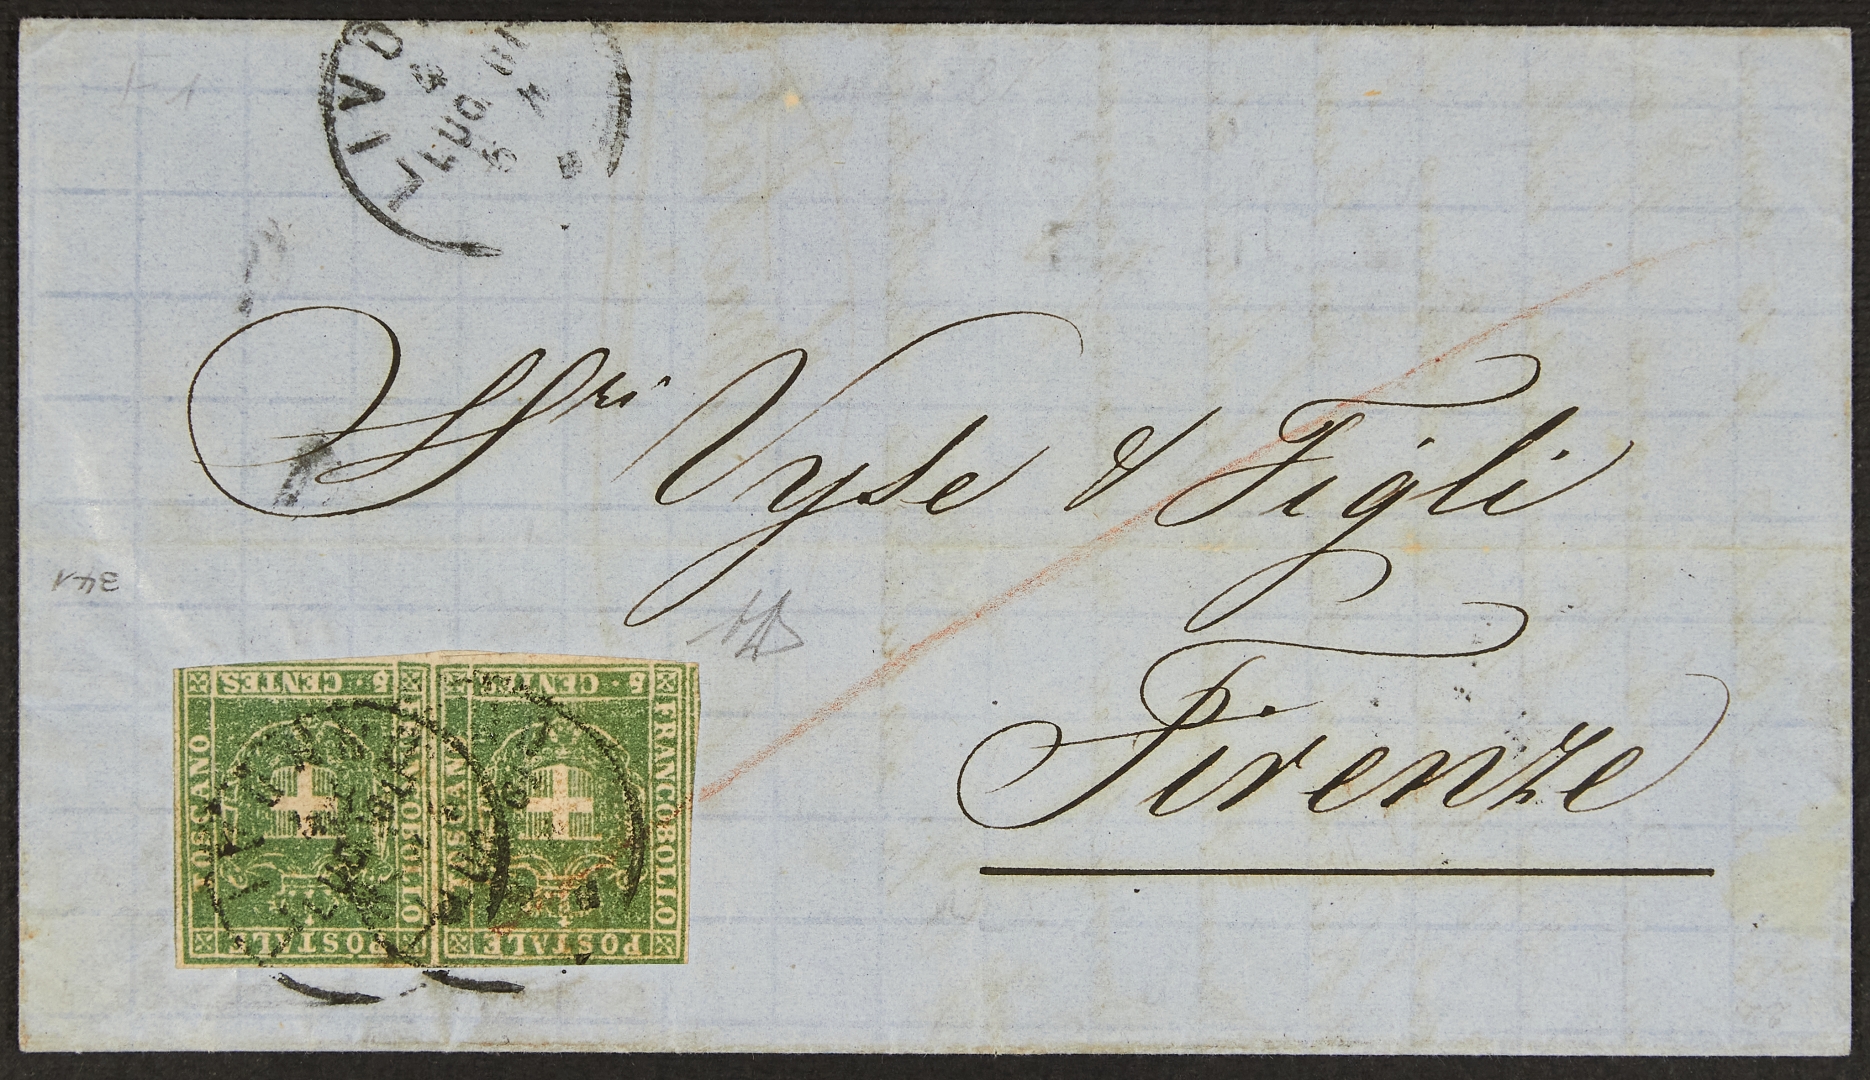 LIVO
LUG 61
S^ri Vyse & Figli
Firenze
341
5 · CENTES
5 · CENTES
TOSCANO
FRANCOBOLLO
TOSCANO
FRANCOBOLLO
POSTALE
POSTALE
LIVO
LUG
LUG